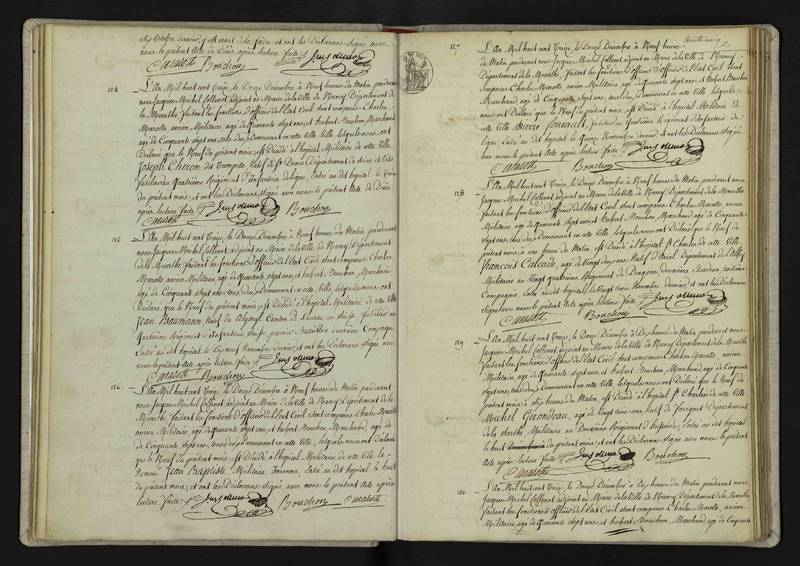 dix Octobre dernier, et ont les Déclarans signé avec
nous le présent Acte de Décès, après lecture faite.
Marotte Bouchon
124 L'An Mil huit cent Treize, le Douze Décembre à Neuf heures du Matin pardevant
nous Jacques Michel Collenot adjoint au Maire de la Ville de Nancy Département de
la Meurthe, faisant les fonctions d'officier de l'Etat Civil sont comparus Charles
Marotte, ancien Militaire, agé de Quarante sept ans, et hubert Bouchon, Marchand
agé de Cinquante sept ans, tous deux Demeurant en cette Ville lesquels nous ont
Déclaré que le Neuf du présent mois est Décédé à l'hôpital Militaire de cette Ville,
Joseph Cheron
quatrième Régiment d'Infanterie de ligne, Entré au dit hôpital le
du présent mois, et ont les Déclarans signé avec nous le présent Acte de Décès
après lecture faite.
Marotte Bouchon
125 L'An Mil huit cent Treize, le Douze Décembre à Neuf heures du Matin pardevant
nous Jacques Michel Collenot, adjoint au Maire de la Ville de Nancy, Département
de la Meurthe, faisant les fonctions d'officier de l'Etat Civil sont comparus Charles
Marotte ancien Militaire, agé de Quarante sept ans, et hubert Bouchon, Marchand
agé de Cinquante sept ans, tous deux Demeurant en cette Ville, lesquels nous ont
Déclaré que le Neuf du présent mois, est Décédé à l'hôpital Militaire de cette Ville
Jean Baumann, Natif de Canton de Lucerne en Suisse, fusilier au
Quatrième Régiment d'Infanterie Suisse, premier Bataillon Deuxième Compagnie
Entré au dit hôpital le Novembre dernier, et ont les Déclarans signé avec
nous le présent Acte après lecture faite.
Marotte Bouchon
126 L'An Mil huit cent Treize, le Douze Décembre à Neuf heures du Matin pardevant
nous Jacques Michel Collenot, adjoint au Maire de la Ville de Nancy Département de la
Meurthe faisant les fonctions d'officier de l'Etat Civil sont comparus Charles Marotte
ancien Militaire agé de Quarante sept ans, et hubert Bouchon, Marchand, agé de
Cinquante sept ans, tous deux Demeurant en cette Ville, lesquels nous ont Déclaré
que le Neuf du présent mois est Décédé à l'hôpital Militaire de cette Ville le
Nommé Jean Baptiste, Militaire inconnu, Entré au dit hôpital le huit
du présent mois, et ont les Déclarans signé avec nous le présent Acte après
lecture faite.
Bouchon Marotte
127 L'An Mil huit cent Treize, le Douze Décembre à Neuf heures
du Matin pardevant nous Jacques Michel Collenot adjoint au Maire de la Ville de Nancy
Département de la Meurthe, faisant les fonctions d'officier de l'Etat Civil sont
comparus Charles Marotte ancien Militaire agé de Quarante sept ans, et hubert Bouchon
Marchand, agé de Cinquante sept ans, tous deux Demeurant en cette Ville lesquels
nous ont Déclaré que le Neuf du présent mois, est Décédé à l'hôpital Militaire de
cette Ville Pierre fusilier au Quatrième Régiment d'Infanterie de
ligne, Entré au dit hôpital le Quinze Novembre dernier et ont les Déclarans signé
avec nous le présent Acte après lecture faite.
Marotte Bouchon
128 L'An Mil huit cent Treize, le Douze Décembre à Neuf heures du Matin pardevant nous
Jacques Michel Collenot, adjoint au Maire de la Ville de Nancy Département de la Meurthe
faisant les fonctions d'officier de l'Etat Civil sont comparus, Charles Marotte, ancien
Militaire, agé de Quarante sept ans, et hubert Bouchon, Marchand, agé de Cinquante
sept ans, tous deux Demeurant en cette Ville, lesquels nous ont Déclaré que le Neuf du
présent mois à heures du Matin, est Décédé à l'hôpital St Charles de cette Ville
François agé de Vingt deux ans, Natif d' Département de
Militaire au Vingt quatrième Régiment de Dragons
Compagnie, Entré au dit hôpital le Vingt trois Novembre dernier, et ont les Déclarans
signé avec nous le présent Acte après lecture faite.
Marotte Bouchon
129 L'An Mil huit cent Treize, le Douze Décembre à Dix heures du Matin pardevant nous
Jacques Michel Collenot adjoint au Maire de la Ville de Nancy Département de la Meurthe,
faisant les fonctions d'officier de l'Etat Civil sont comparus Charles Marotte, ancien
Militaire, agé de Quarante sept ans, et hubert Bouchon, Marchand, agé de Cinquante
sept ans, tous deux Demeurant en cette Ville, lesquels nous ont Déclaré que le Neuf du
présent mois à heures du Matin, est Décédé à l'hôpital St Charles de cette Ville
Michel Girondeau, agé de Vingt trois ans, Natif de Département
de la Sarthe, Militaire au Deuxième Régiment d' Entré au dit hôpital
le huit du présent mois, et ont les Déclarans signé avec nous le présent
Acte après lecture faite.
Marotte Bouchon
130 L'An Mil huit cent Treize, le Douze Décembre à Dix heures du Matin pardevant nous
Jacques Michel Collenot, adjoint au Maire de la Ville de Nancy, Département de la Meurthe
faisant les fonctions d'officier de l'Etat Civil sont comparus Charles Marotte, ancien
Militaire, agé de Quarante sept ans, et hubert Bouchon, Marchand, agé de Cinquante